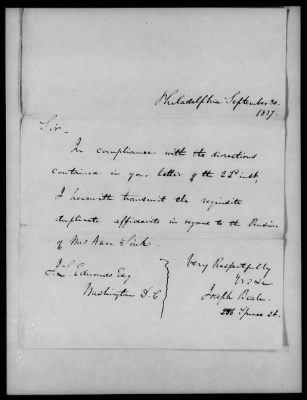 Philadelphia September 30.
1837.
Sir.
In compliance with the directions
contained in your letter of the 22d inst,
I herewith transmit the requisite
duplicate affidavits in regard to the Pension
of Mrs Ann Sink.
J. L. Edwards Esq
Washington D. C
Very Respectfully
Yrs &c
Joseph Beale
Spruce St.